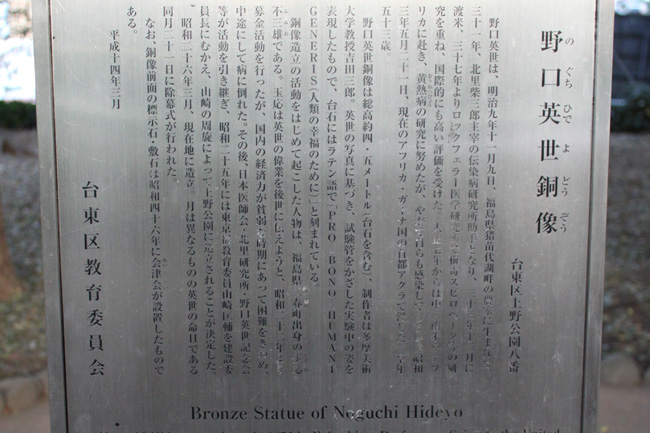 野口英世銅像
のぐちひでよどうぞう
台東区上野公園八番
野口英世は、明治九年十一月九日、福島県猪苗代湖畔の
三十一年、北里柴三郎主宰の伝染病研究所助手となり、
渡米、三十七年よりロックフェラー医学研究所
究を重ね、国際的にも高い評価を受けた。
リカに赴き、黄熱病の研究に努めたが、
三年五月二十一日、現在のアフリカ・ガーナ国の首都アクラで
五十三歳
野口英世銅像は総高約四・五メートル(台石を含む)、制作者は多摩美術
大学教授吉田三郎。英世の写真に基づき、試験管をかざした実験中の姿を
表現したもので、台石にはラテン語で「PRO BONO HUMANI
GENERIS(人類の幸福のために)」と刻まれている。
銅像造立の活動をはじめて起こした人物は、福島県
不三雄である。玉応は英世の偉業を後世に伝えようと、昭和二十二年
募金活動を行ったが、国内の経済力が貧弱な時期にあって困難をきわめ、
中途にして病に倒れた。その後、日本医師会・北里研究所・野口英世記念会
等が活動を引き継ぎ、昭和二十五年には東京都教育委員山崎匡輔を建設委
員長にむかえ、山崎の周旋によって上野公園に造立されることが決定した。
昭和二十六年三月、現在地に造立。月は異なるものの英世の命日である
同月二十一日に除幕式が行われた。
なお、銅像前面の標示石・敷石は昭和四十六年に会津会が設置したもので
ある。
平成十四年三月
台東区教育委員会
Bronze Statue of Noguchi Hideyo